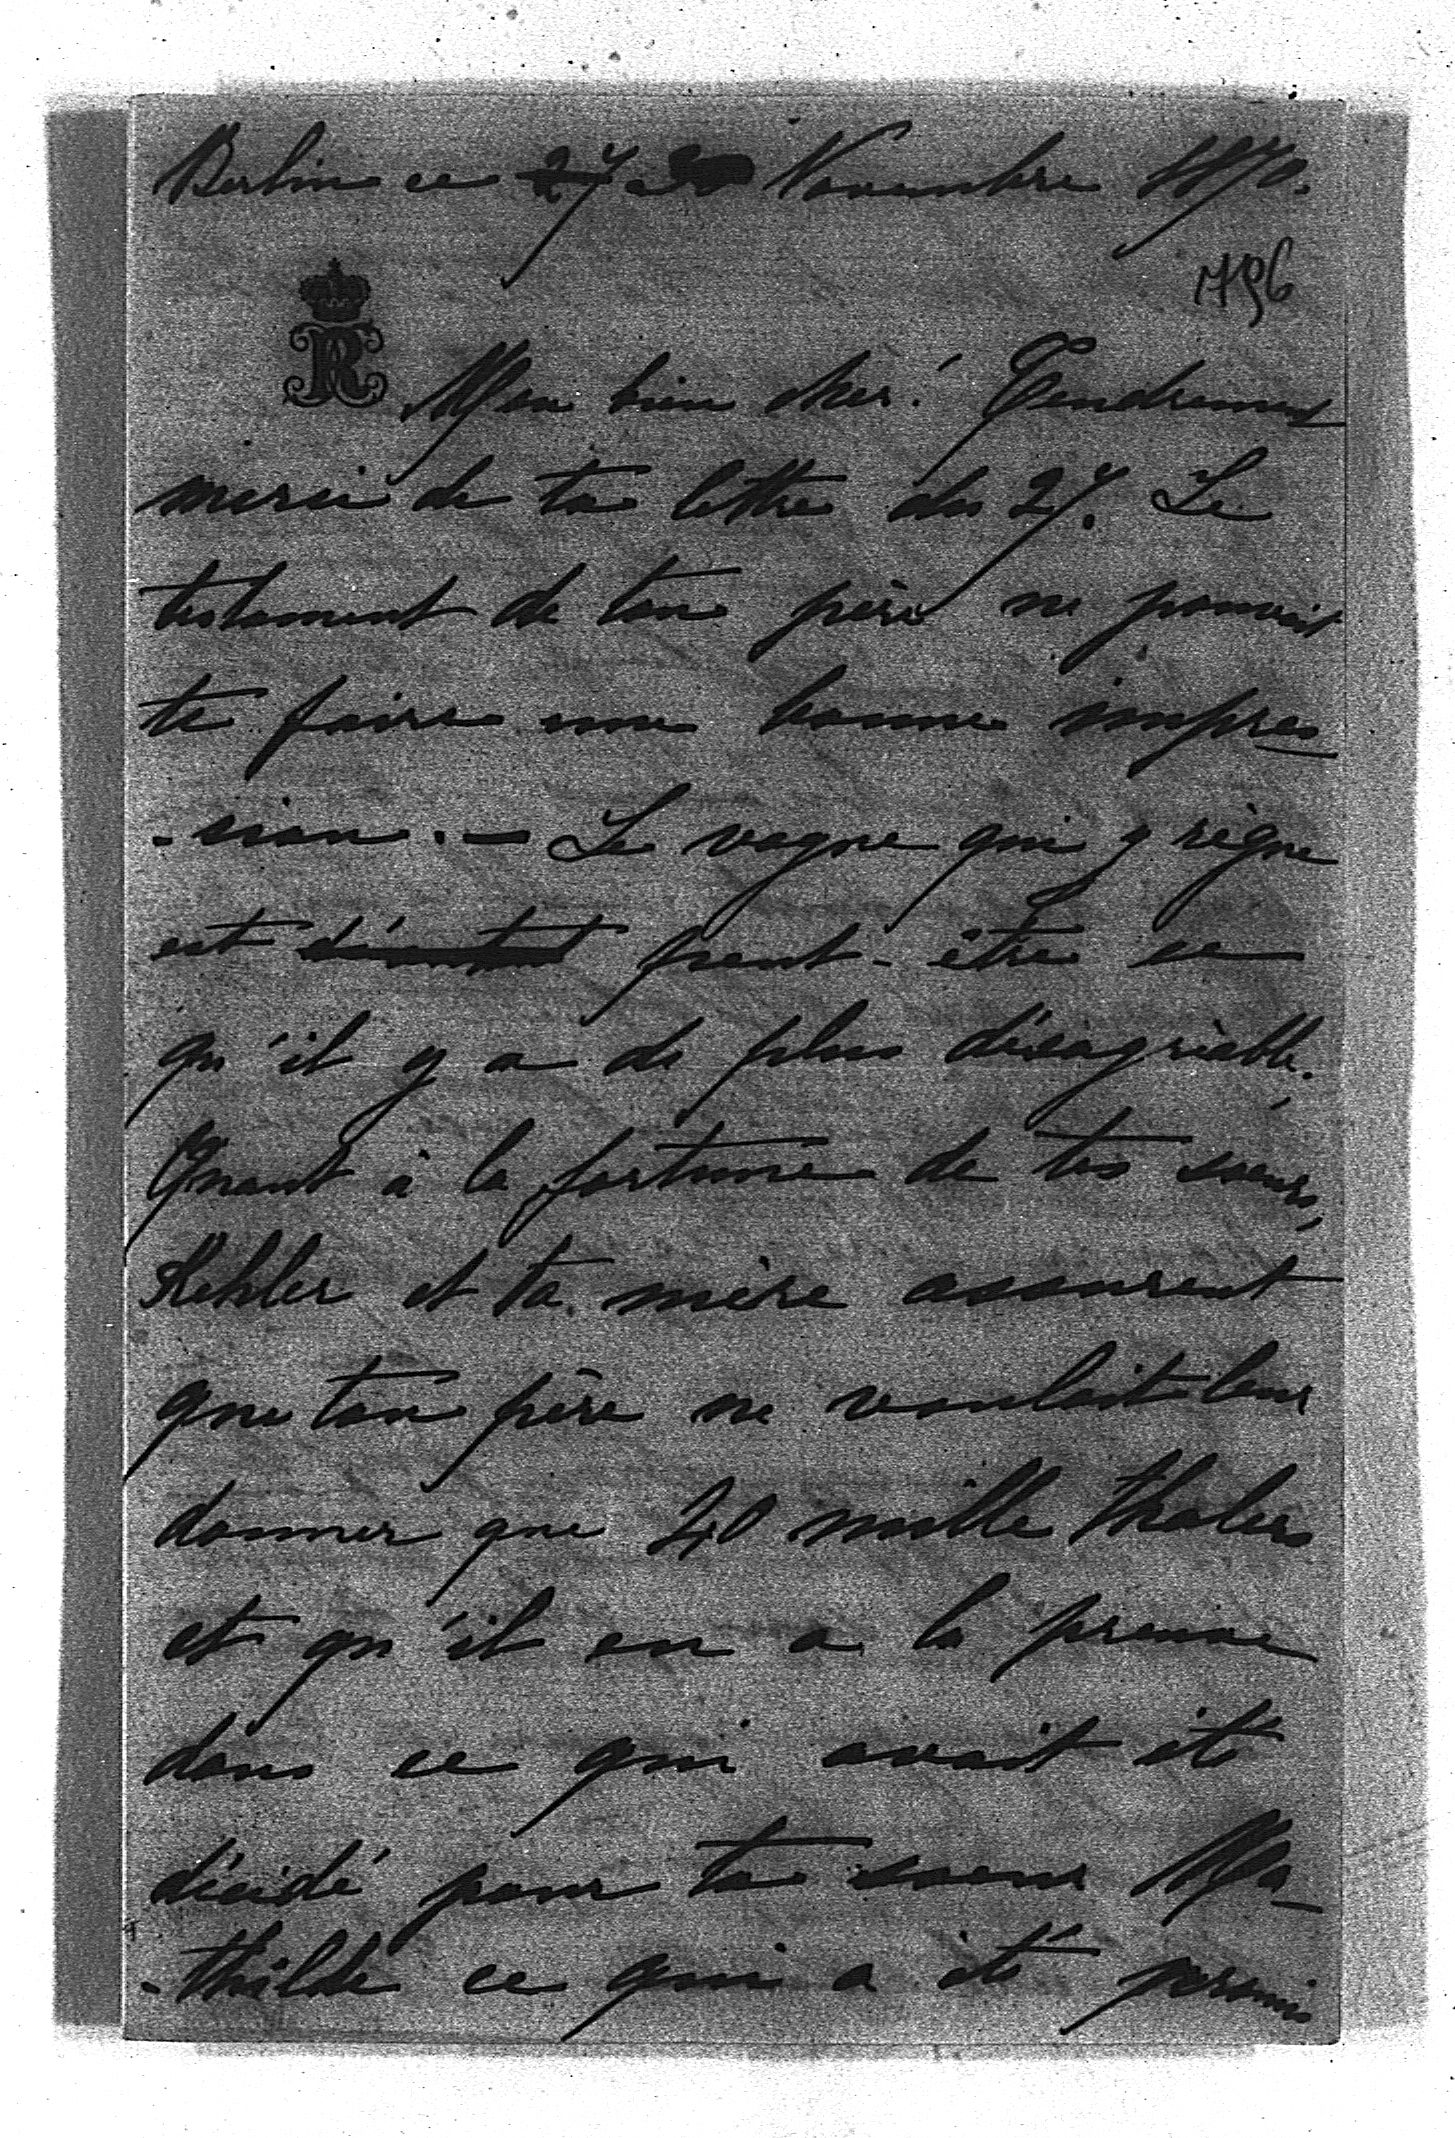 Berlin ce 27 30 Novembre 1870.
796
R
Mon bien cher! Tendrement
merci de ta lettre du 27. Le
testament de ton père ne pouvait
te faire une bonne impres
-sion. — Le vague qui y règne
est peut-être ce
qu'il y a de plus désagréable.
Quant à la fortune de tes soeurs,
Kehler et ta mère assurent
que ton père ne voulait leur
donner que 40 mille thalers
et qu'il en a la preuve
dans ce qui avait été
décidé pour ta soeur Ma-
-thilde ce qui a été